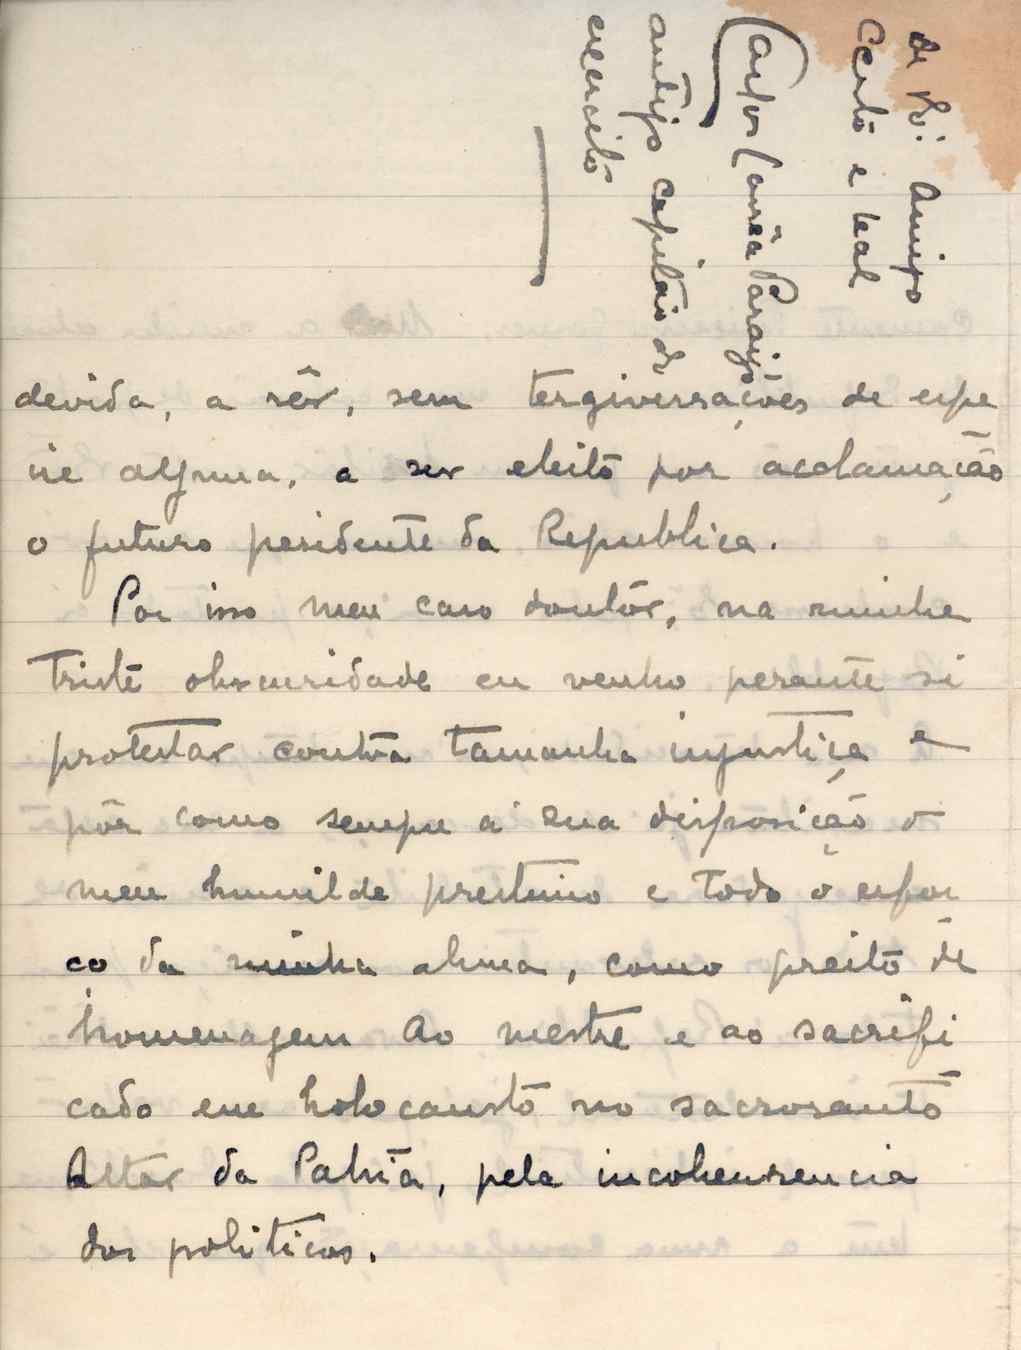 devida, a sêr, sem tergiversações de espe
cie alguma, a ser eleito por acclamação
o futuro pesidente da Republica.
Por isso meu caro doutôr, na minha
triste obscuridade eu venho perante si
protestar contra tamanha injustiça e
pôr como sempre a sua disposição o
meu humilde prestimo e todo o esfor
ço da minha alma, como preito de
homenagem ao mestre e ao sacrifi
cado em holocausto no sacrosanto
Altar da Patria, pela incohenrencia
dos politicos.
de V. Amigo
Certo e leal
Carlos Corrêa
antigo capitão do
exercito